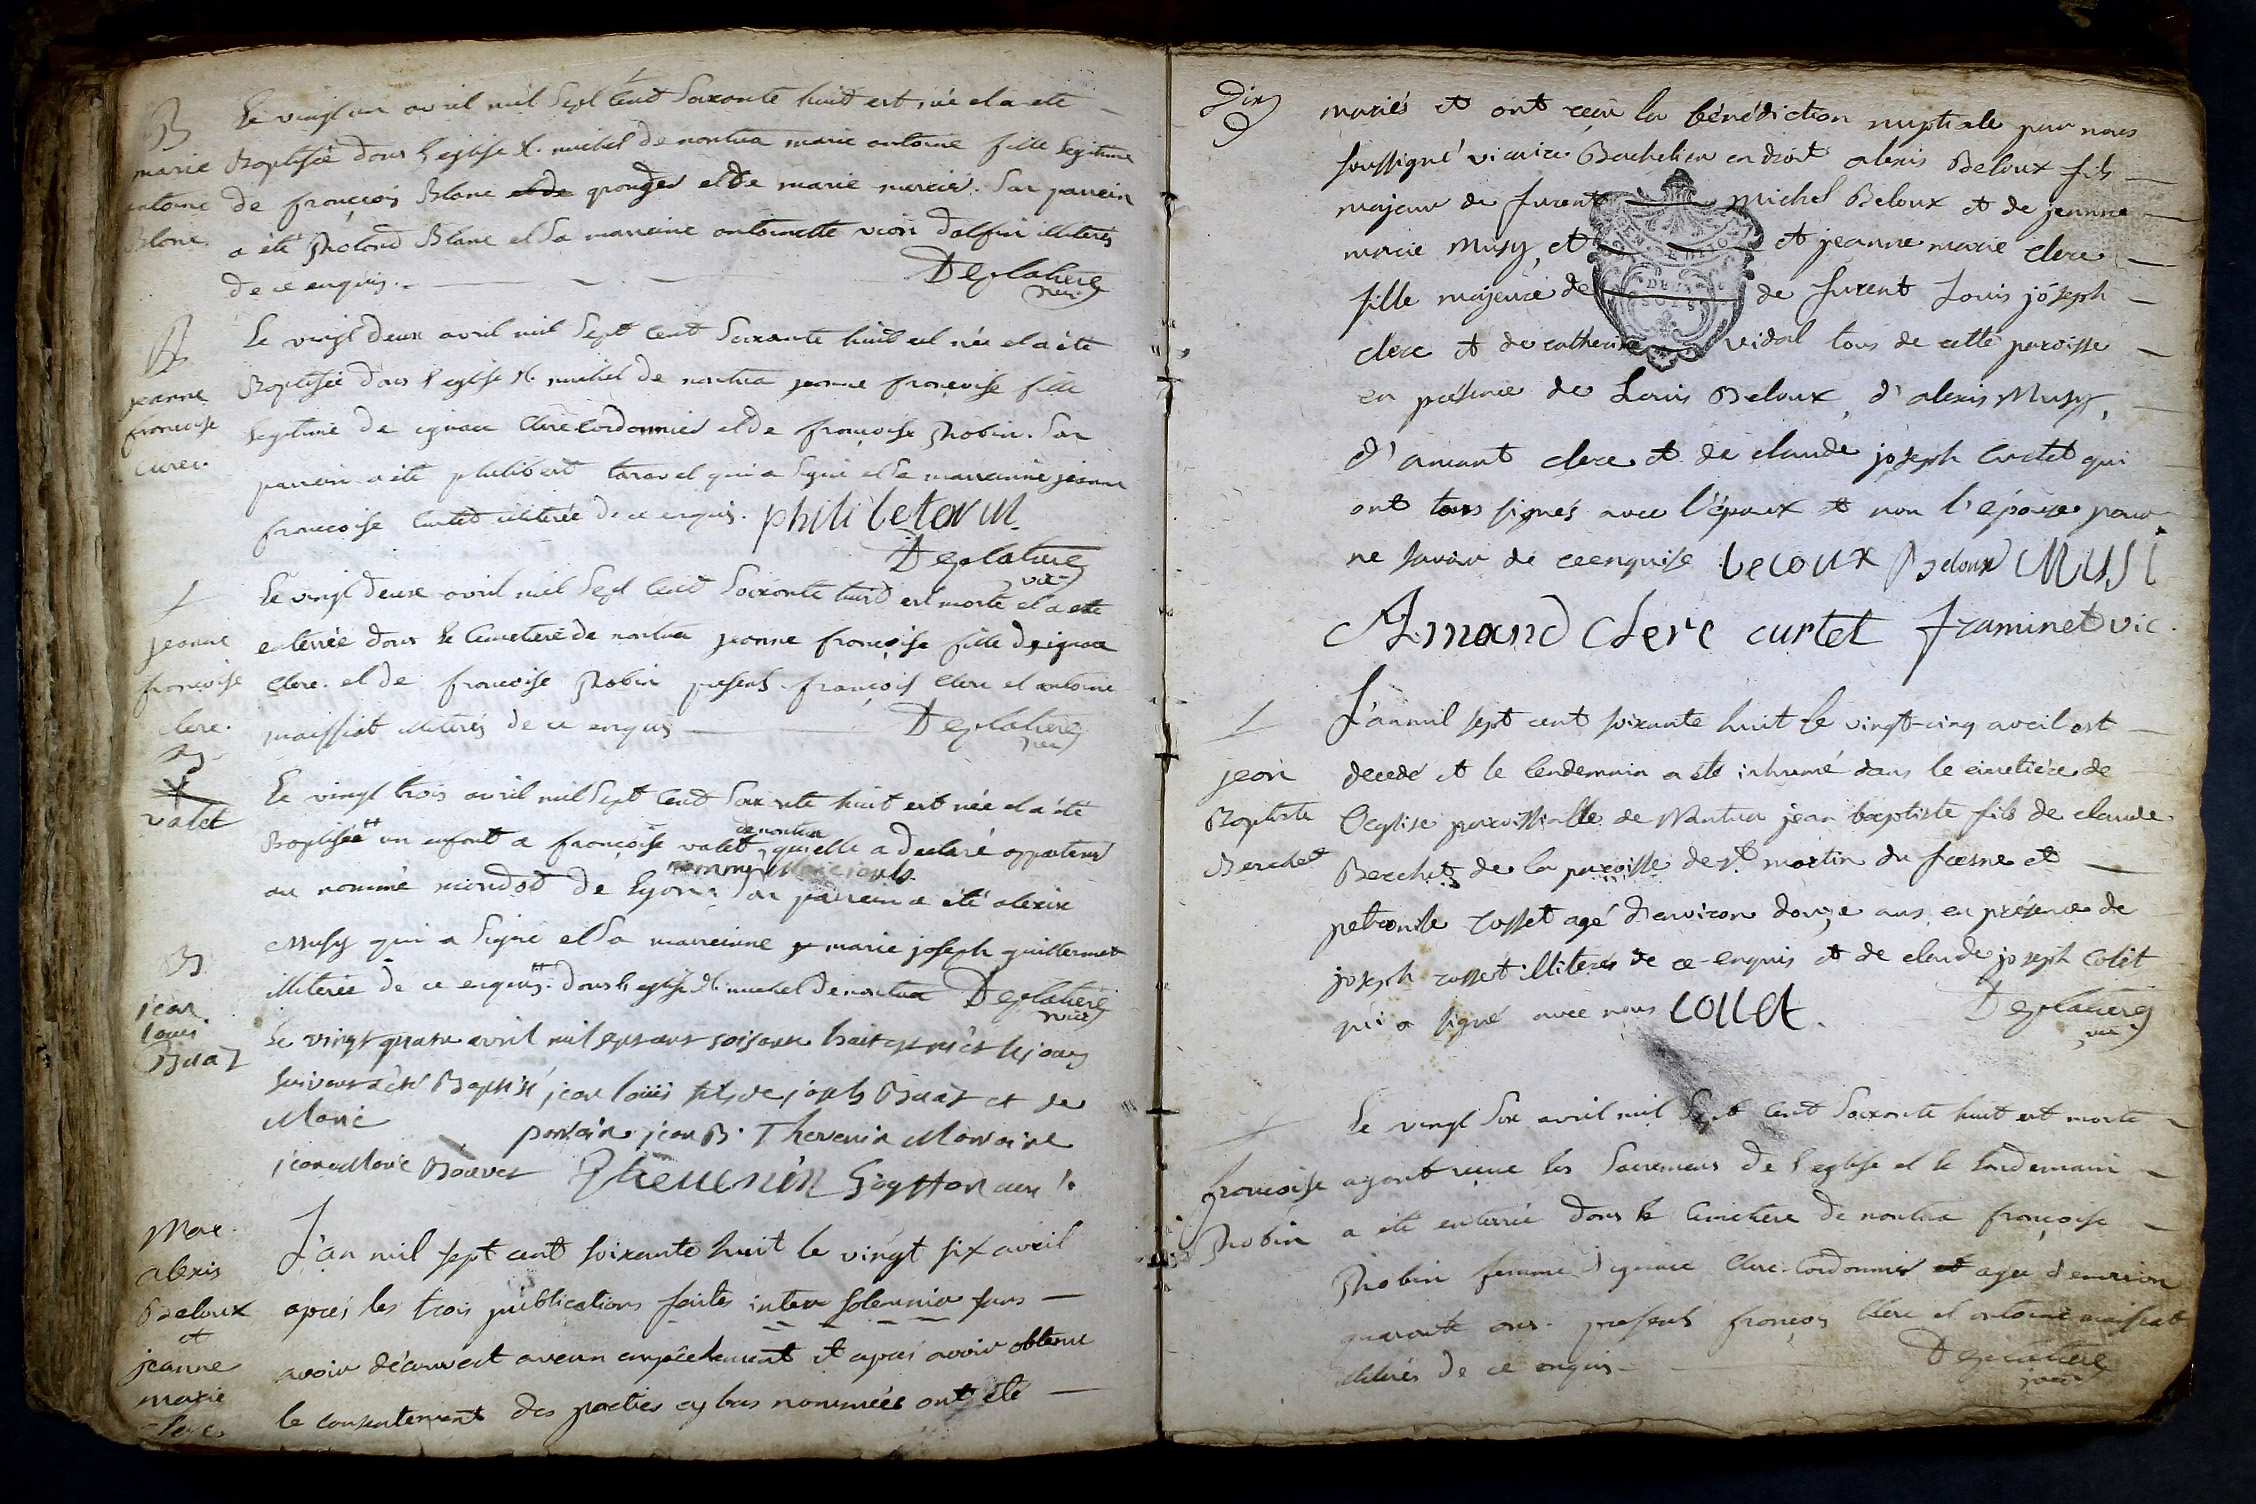 B
marie
antoine
Blanc
Le vingt un avril mil Sept Cent Soixante huit est née et a été
Baptisée dans l'eglise St. michel de nantua marie antoine fille legitime
de françois Blanc et de marie mercier. Son parrein
a été Roland Blanc et Sa marreine antoinette vion Dalfin illiterés
de ce enquis.
Deplatiere
vic
B
jeanne
francoise
Clerc.
Le vingt deux avril mil Sept Cent Soixante huit est née et a été
Baptisée dans l'eglise St. michel de nantua jeanne françoise fille
legitime de ignace Clerc Cordonnier et de françoise Robin. Son
parrein a été philibert taravel qui a Signé et Sa marreinne jeanne
francoise Curtet illiterée de ce enquis.
Deplatiere
vic
jeanne
françoise
clerc.
Le vingt deux avril mil Sept Cent Soixante huit est morte et a été
enterrée dans le Cimetiere de nantua jeanne françoise fille de ignace
Clerc. et de françoise Robin presents françois Clerc et antoine
maissiat illiterés de ce enquis
Deplatiere
vic
B
valet
Le vingt trois avril mil Sept Cent Soixante huit est née et a été
Baptisée un enfant a françoise valet de nantua qu'elle a declaré appartenir
au nommé riondot de Lyon. Son parrein a été alexis
Musy qui a Signé et Sa marreinne marie joseph guillermet
illiterée de ce enquis. dans l'eglise St. michel de nantua Deplatiere
vic
B
jean
louis
Buaz
Le vingt quatre avril mil sept cent soixante huit est né et le jour
suivant a été Baptisé jean louis fils de joseph Buaz et de
Marie
parrain jean B. Thevenin Marraine
jeanne Marie Bouvet Thevenin
Mar.
alexis
Beloux
et
jeanne
marie
clerc
L'an mil sept cent soixante huit le vingt six avril
après les trois publications faites inter solemnia sans
avoir découvert aucun empêchement et après avoir obtenu
le consentement des parties cy bas nommées ont été
Dix
mariés et ont reçu la bénédiction nuptiale par nous
soussigné vicaire Bachelier en droit alexis Beloux fils
majeur de furent michel Beloux et de jeanne
marie Musy, et et jeanne marie clerc
fille majeure de de furent Louis joseph
clerc et de catherine vidal tous de cette paroisse
en présence de Louis Beloux, d'alexis Musy,
d'amant clerc et de claude joseph Curtet qui
ont tous signés avec l'époux et non l'épouse pour
ne savoir de ce enquise Beloux Beloux MUSI
Amand Clerc curtet framinet vic.
jean
Baptiste
Berchet
L'an mil sept cent soixante huit le vingt-cinq avril est
decedé et le lendemain a été inhumé dans le cimetière de
l'église paroissialle de Nantua jean baptiste fils de claude
Berchet de la paroisse de St. martin du fresne et
petronile rosset agé d'environ douze ans en présence de
joseph rosset illiteré de ce enquis et de claude joseph Colet
qui a signé avec nous Collet.
Deplatiere
vic
françoise
Robin
Le vingt Six avril mil Sept Cent Soixante huit est morte
ayant reçue les Sacremens de l'eglise et le lendemain
a été enterrée dans le Cimetiere de nantua françoise
Robin femme d'ignace Clerc Cordonnier agée d'environ
quarante ans. presents françois Clerc et antoine maissiat
illiterés de ce enquis
Deplatiere
vic